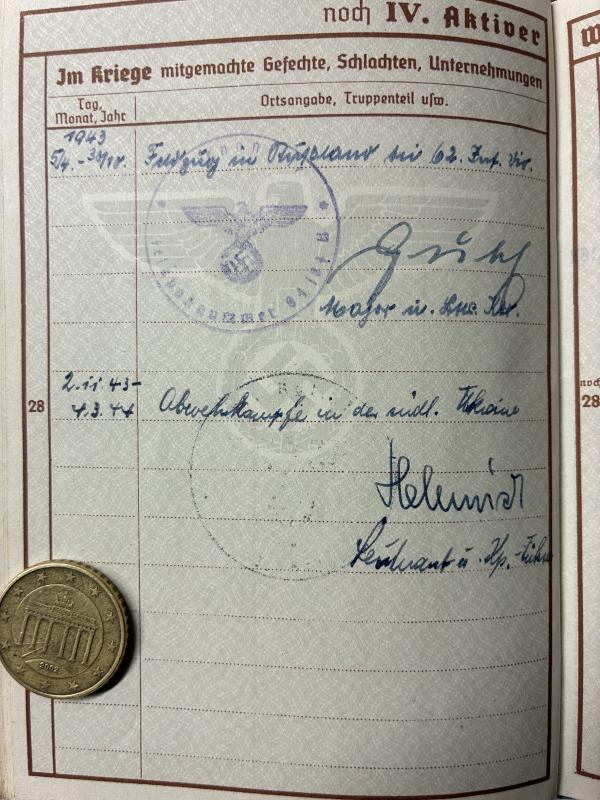 noch IV. Aktiver
Im Kriege mitgemachte Gefechte, Schlachten, Unternehmungen
Tag, Monat, Jahr
Ortsangabe, Truppenteil usw.
1943
5/4. - 30/10. Feldzug in Rußland bei 62. Inf. Div.
Major u.
2.11.43 -
4.3.44 Abwehrkämpfe in der südl. Ukraine
28
Leutnant u. Kp.-Führer
noch
28
2002